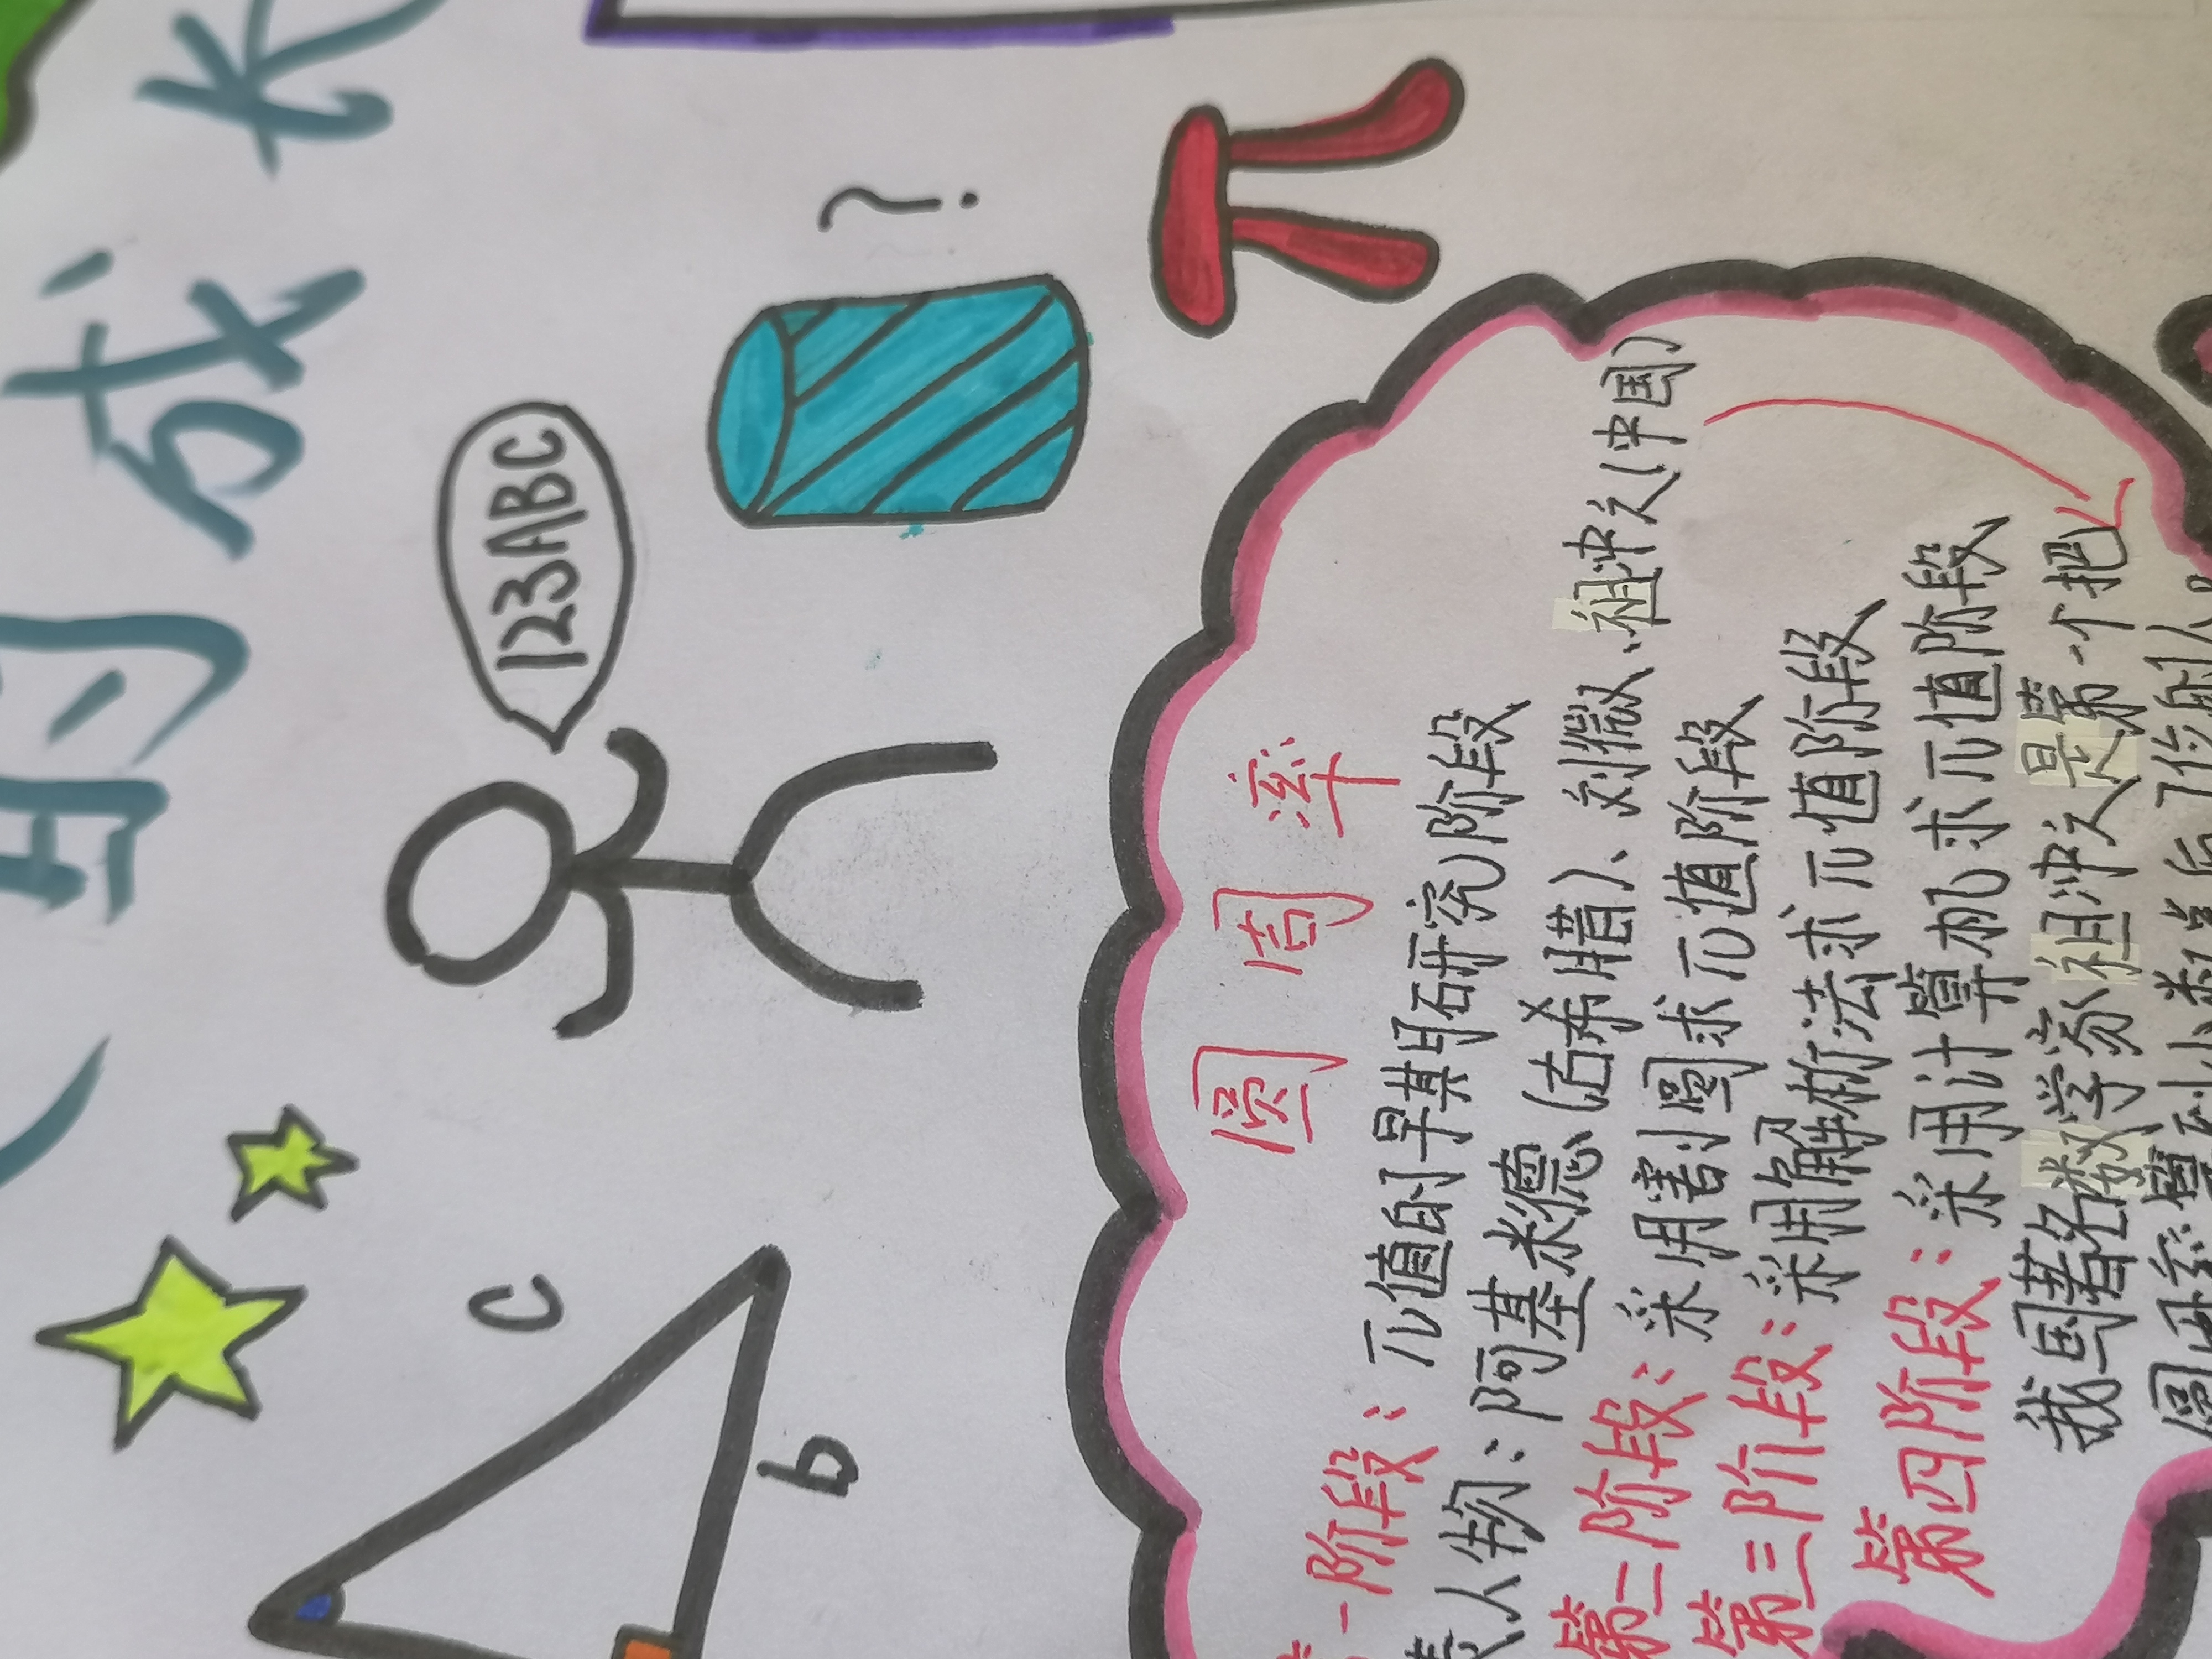 的成长
123ABC
?
c
b
π
圆周率
一阶段：π值的早期研究阶段
表人物：阿基米德（古希腊）、刘徽、祖冲之（中国）
第二阶段：采用割圆求π值阶段
第三阶段：采用解析法求π值阶段
第四阶段：采用计算机求π值阶段
我国著名数学家祖冲之是第一个把
圆周率算到小数点后7位的人。